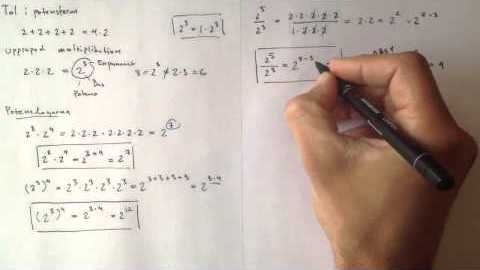 Tal i potensform
2 + 2 + 2 + 2 = 4 · 2
Upprepad multiplikation
2 · 2 · 2 = 2³ Exponent
Bas
Potens
8 = 2³ ≠ 2 · 3 = 6
2³ = 1 · 2³
Potenslagarna
2³ · 2⁴ = 2 · 2 · 2 · 2 · 2 · 2 · 2 = 2⁷
2³ · 2⁴ = 2³⁺⁴ = 2⁷
(2³)⁴ = 2³ · 2³ · 2³ · 2³ = 2³⁺³⁺³⁺³ = 2³·⁴
(2³)⁴ = 2³·⁴ = 2¹²
2⁵/2³ = 2·2·2·2·2/1·2·2·2 = 2 · 2 = 2² = 2⁵⁻³
2⁵/2³ = 2⁵⁻³
OBS!